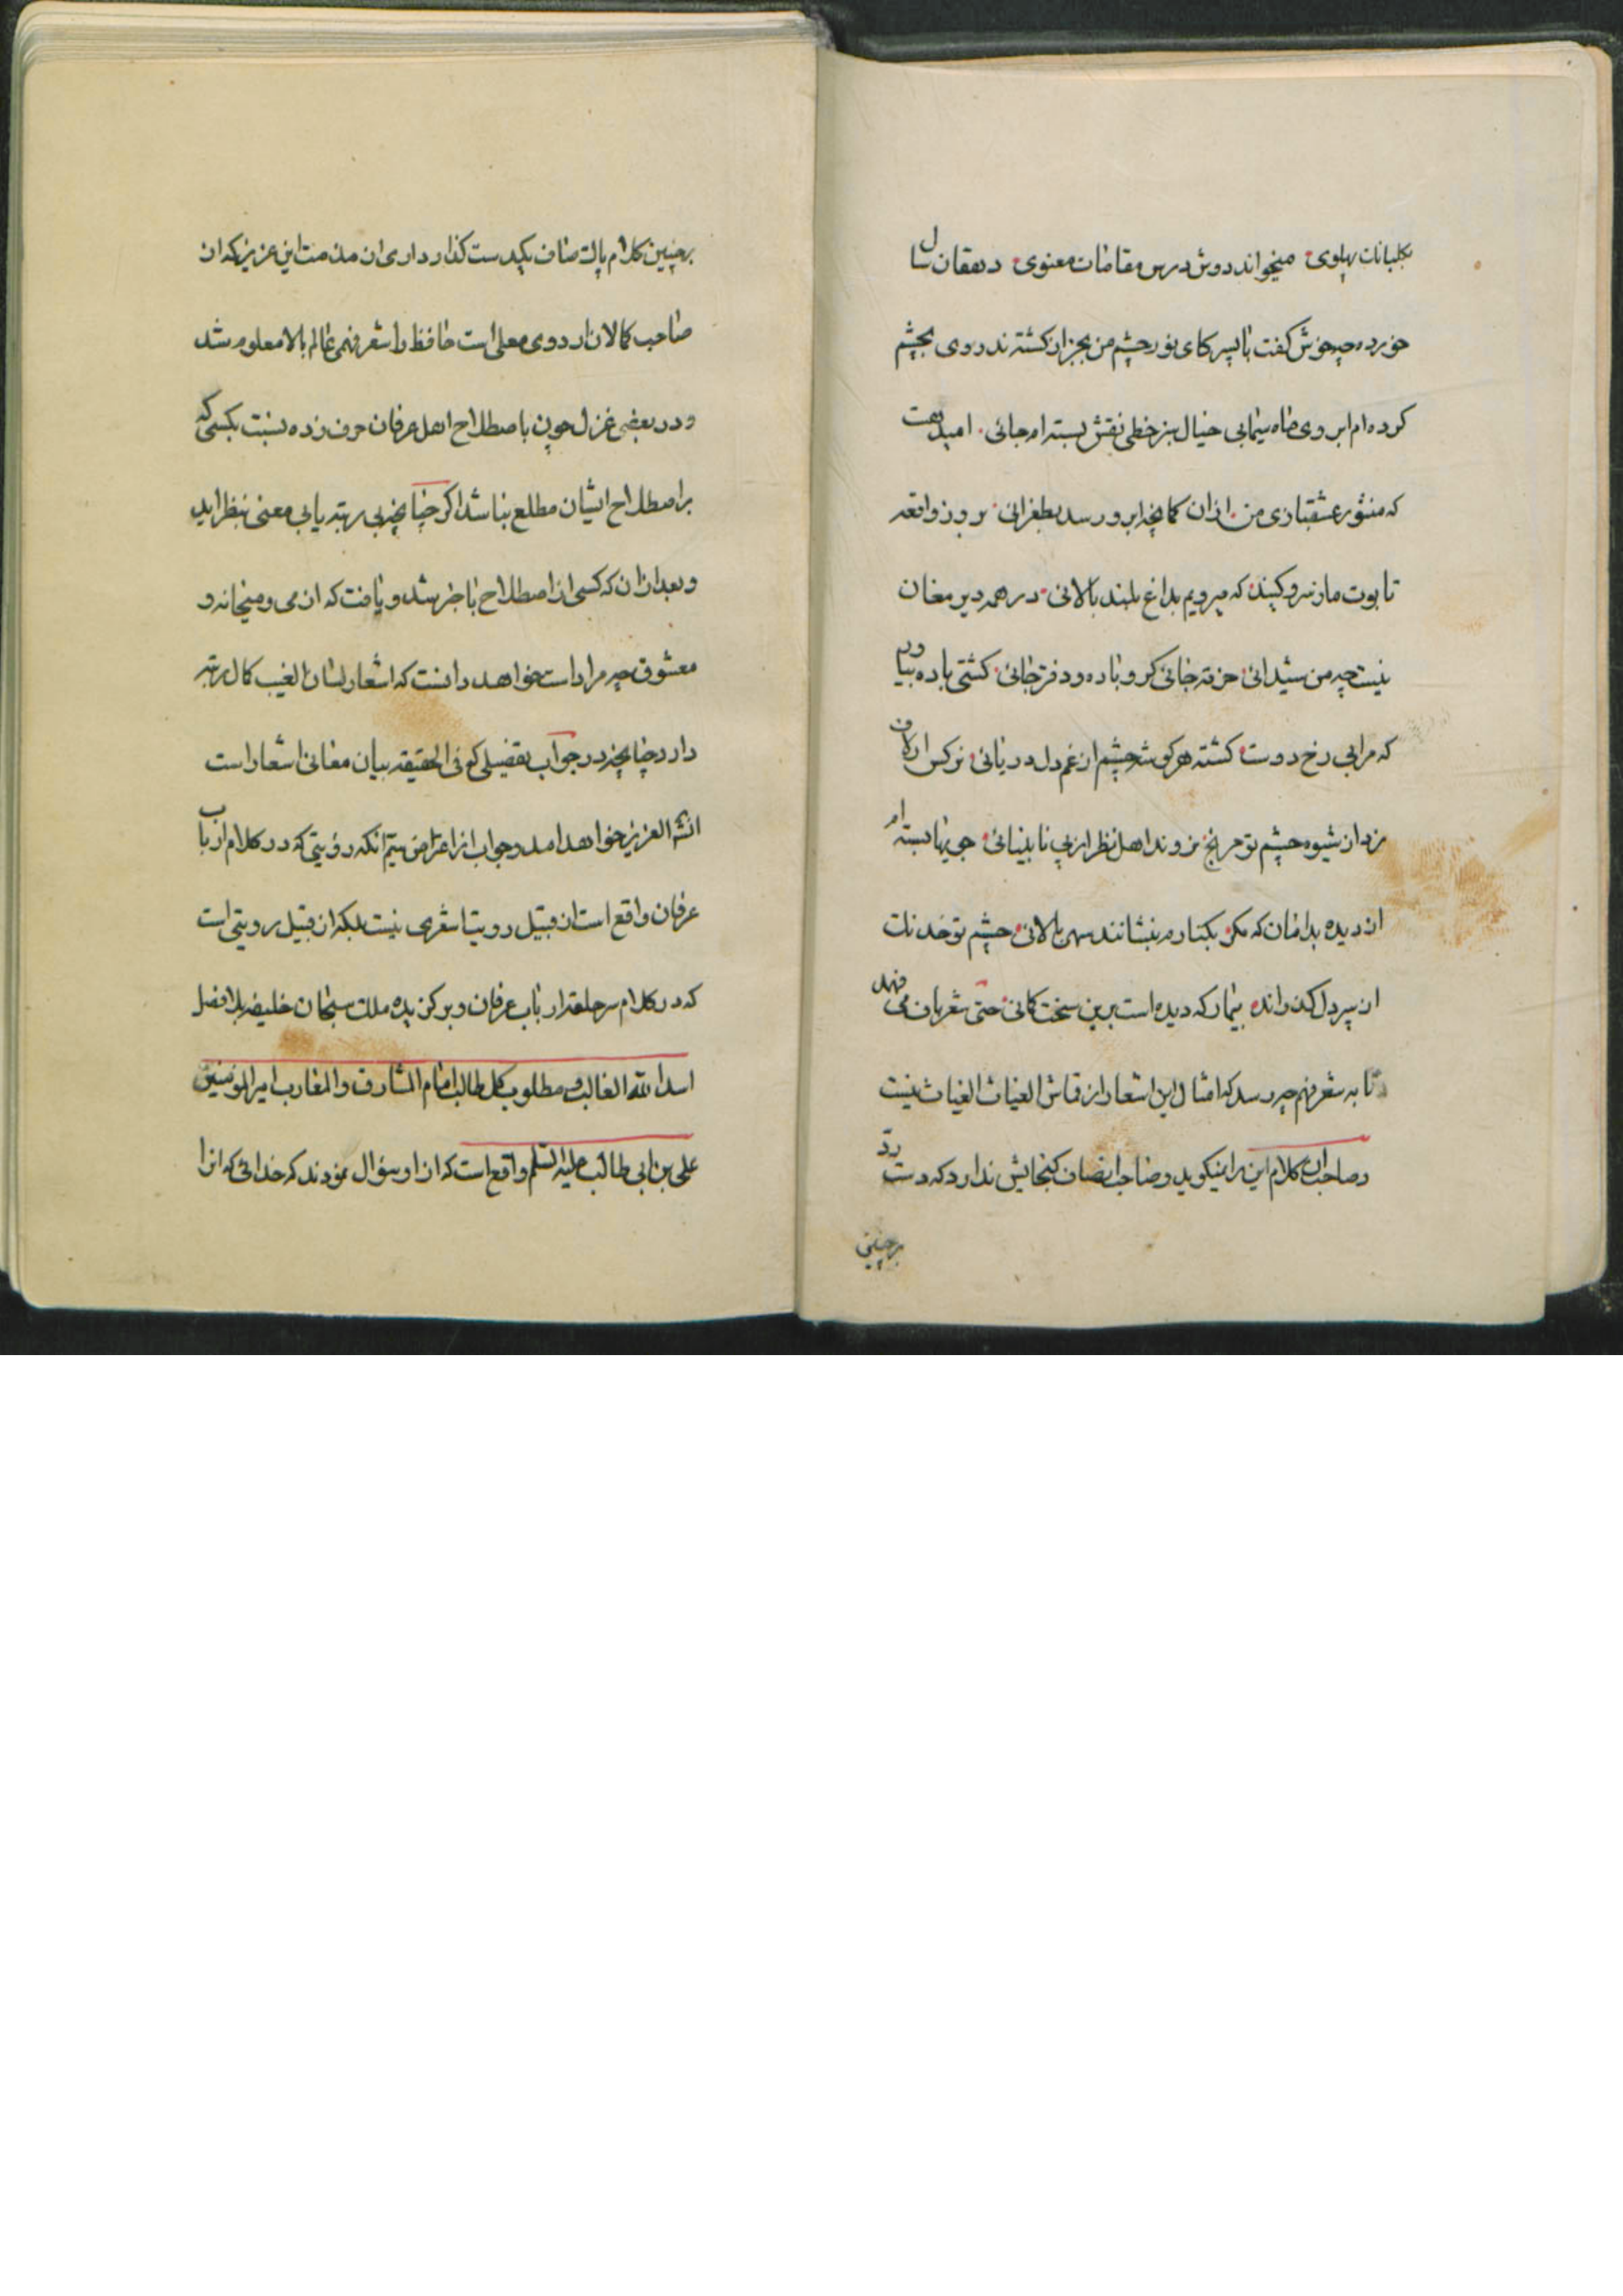 بکلبانک پهلوی میخواند دوش درس مقامات معنوی دهقان سال
خورده چه خوش گفت با پسر کای نور چشم من بجز از کشته ندروی بچشم
کرده ام ابروی ماه سیمایی خیال سبز خطی نقش بسته ام جائی امید هست
که منشور عشقبازی من از ان کمانچه ابرو رسد بطغرائی بروز واقعه
تابوت ما ز سرو کنید که میرویم بداغ بلند بالائی در همه دیر مغان
نیست چو من شیدائی خرقه جائی کرو باده و دفتر جائی کشتی باده بیاور
که مرا بی رخ دوست کشته هر کوشه چشم از غم دل دریائی نرکس ار لاف
زد از شیوه چشم تو مرنج نروند اهل نظر از پی نابینائی جویها بسته ام
از دیده بدامان که مکر بکنارم بنشانند سهی بالائی چشم تو خدنک
از سپر دل گذرانده بیمار که دیده است بدین سخت کمانی حتی شعرباف می فهمد
تا به شعرفهم چه رسد که امثال این اشعار از قماش الغیاث الغیاث نیست
و صاحبان کلام این را نیکوید و صاحب انصاف کنجایش ندارد که دست رد
برچنین
برچنین کلام پاک صاف یکدست کذارد داری ان مذمت این عزیز که از
صاحب کمالان اردوی معلی است حافظ را شعرفهمی عالم بالا معلوم شد
و در بعضی غزل چون باصطلاح اهل عرفان حرف زده نسبت بکسی که
بر اصطلاح ایشان مطلع نباشد اکر چنانچه بی رتبه یا بی معنی بنظر اید
و بعد از ان که کسی از اصطلاح با خبر شد و یافت که از می و میخانه و
معشوق چه مراد است خواهد دانست که اشعار لسان الغیب کمال رتبه
دارد چنانچه در جواب تفضیلی که فی الحقیقه بیان معانی اشعار است
انشه العزیز خواهد امد و جواب از اعتراض سیم انکه رؤیتی که در کلام ارباب
عرفان واقع است از قبیل رویت اشعری نیست بلکه از قبیل رویتی است
که در کلام سر حلقه ارباب عرفان و برکزیده ملک سبحان خلیفه بلافضل
اسد الله الغالب و مطلوب کل طالب امام المشارق والمغارب امیر المومنین
علی بن ابی طالب علیه السلم واقع است که از او سؤال نمودند که خدائی که انرا